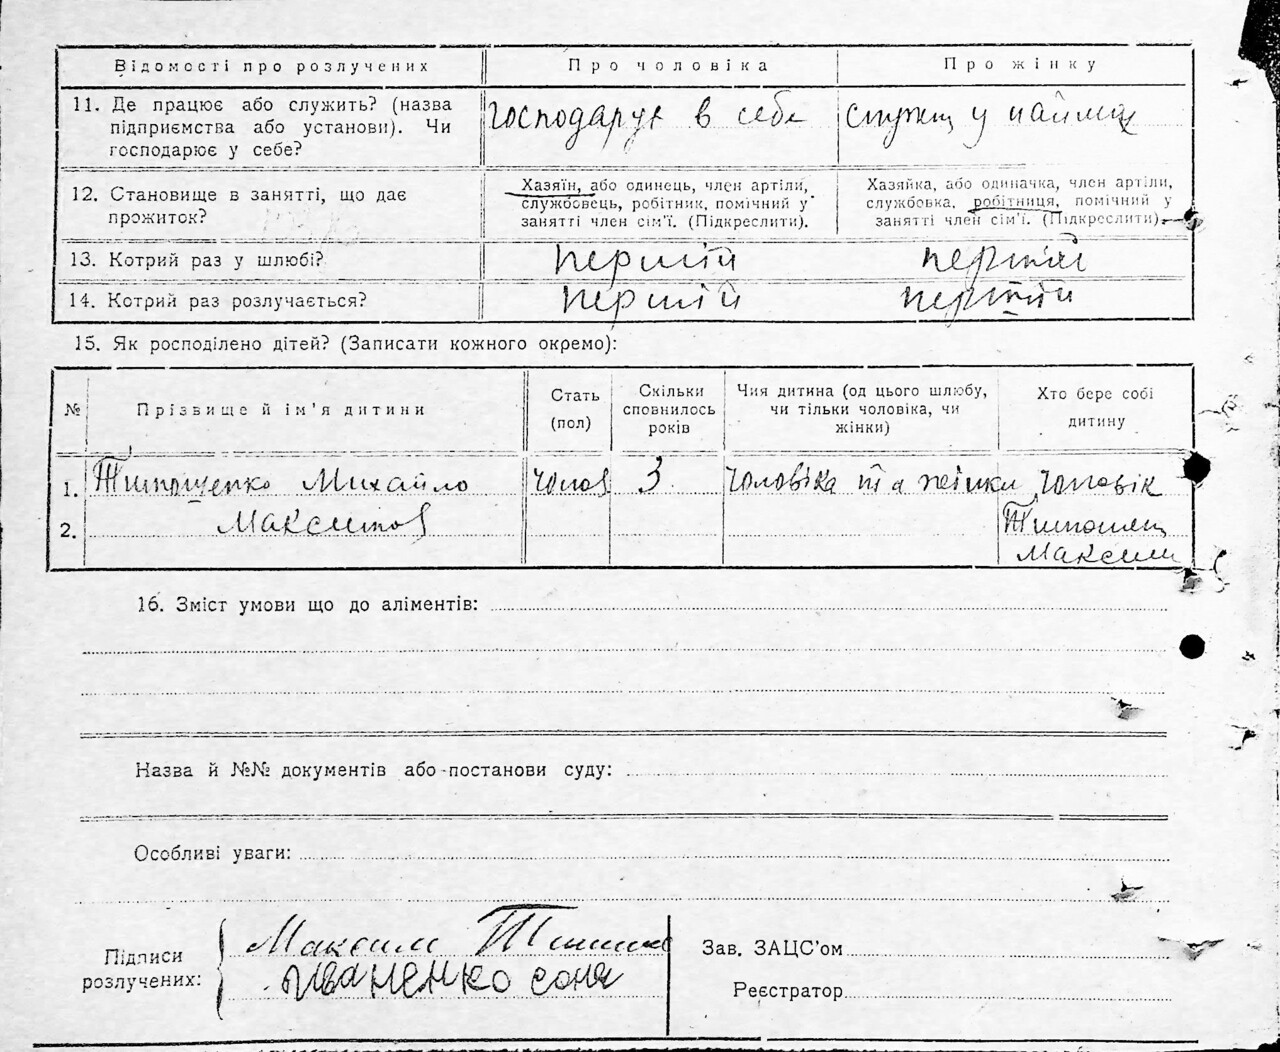 Відомості про розлучених Про чоловіка Про жінку
11. Де працює або служить? (назва
підприємства або установи). Чи
господарює у себе?
господарує в себе
служищ у наймах
12. Становище в занятті, що дає
прожиток?
Хазяїн, або одинець, член артіли,
службовець, робітник, помічний у
занятті член сім'ї. (Підкреслити).
Хазяйка, або одиначка, член артіли,
службовка, робітниця, помічний у
занятті член сім'ї. (Підкреслити).
13. Котрий раз у шлюбі? перший перший
14. Котрий раз розлучається? перший перший
15. Як росподілено дітей? (Записати кожного окремо):
№ Прізвище й ім'я дитини
Стать
(пол)
Скільки
сповнилось
років
Чия дитина (од цього шлюбу,
чи тільки чоловіка, чи
жінки)
Хто бере собі
дитину
1. Тимошенко Михайло чолов 3 чоловіка та жінки чоловік
2. Максимов
Тимошен
Максим
16. Зміст умови що до аліментів:
Назва й №№ документів або постанови суду:
Особливі уваги:
Підписи
розлучених:
Максим
Иваненко соня
Зав. ЗАЦС'ом
Реєстратор